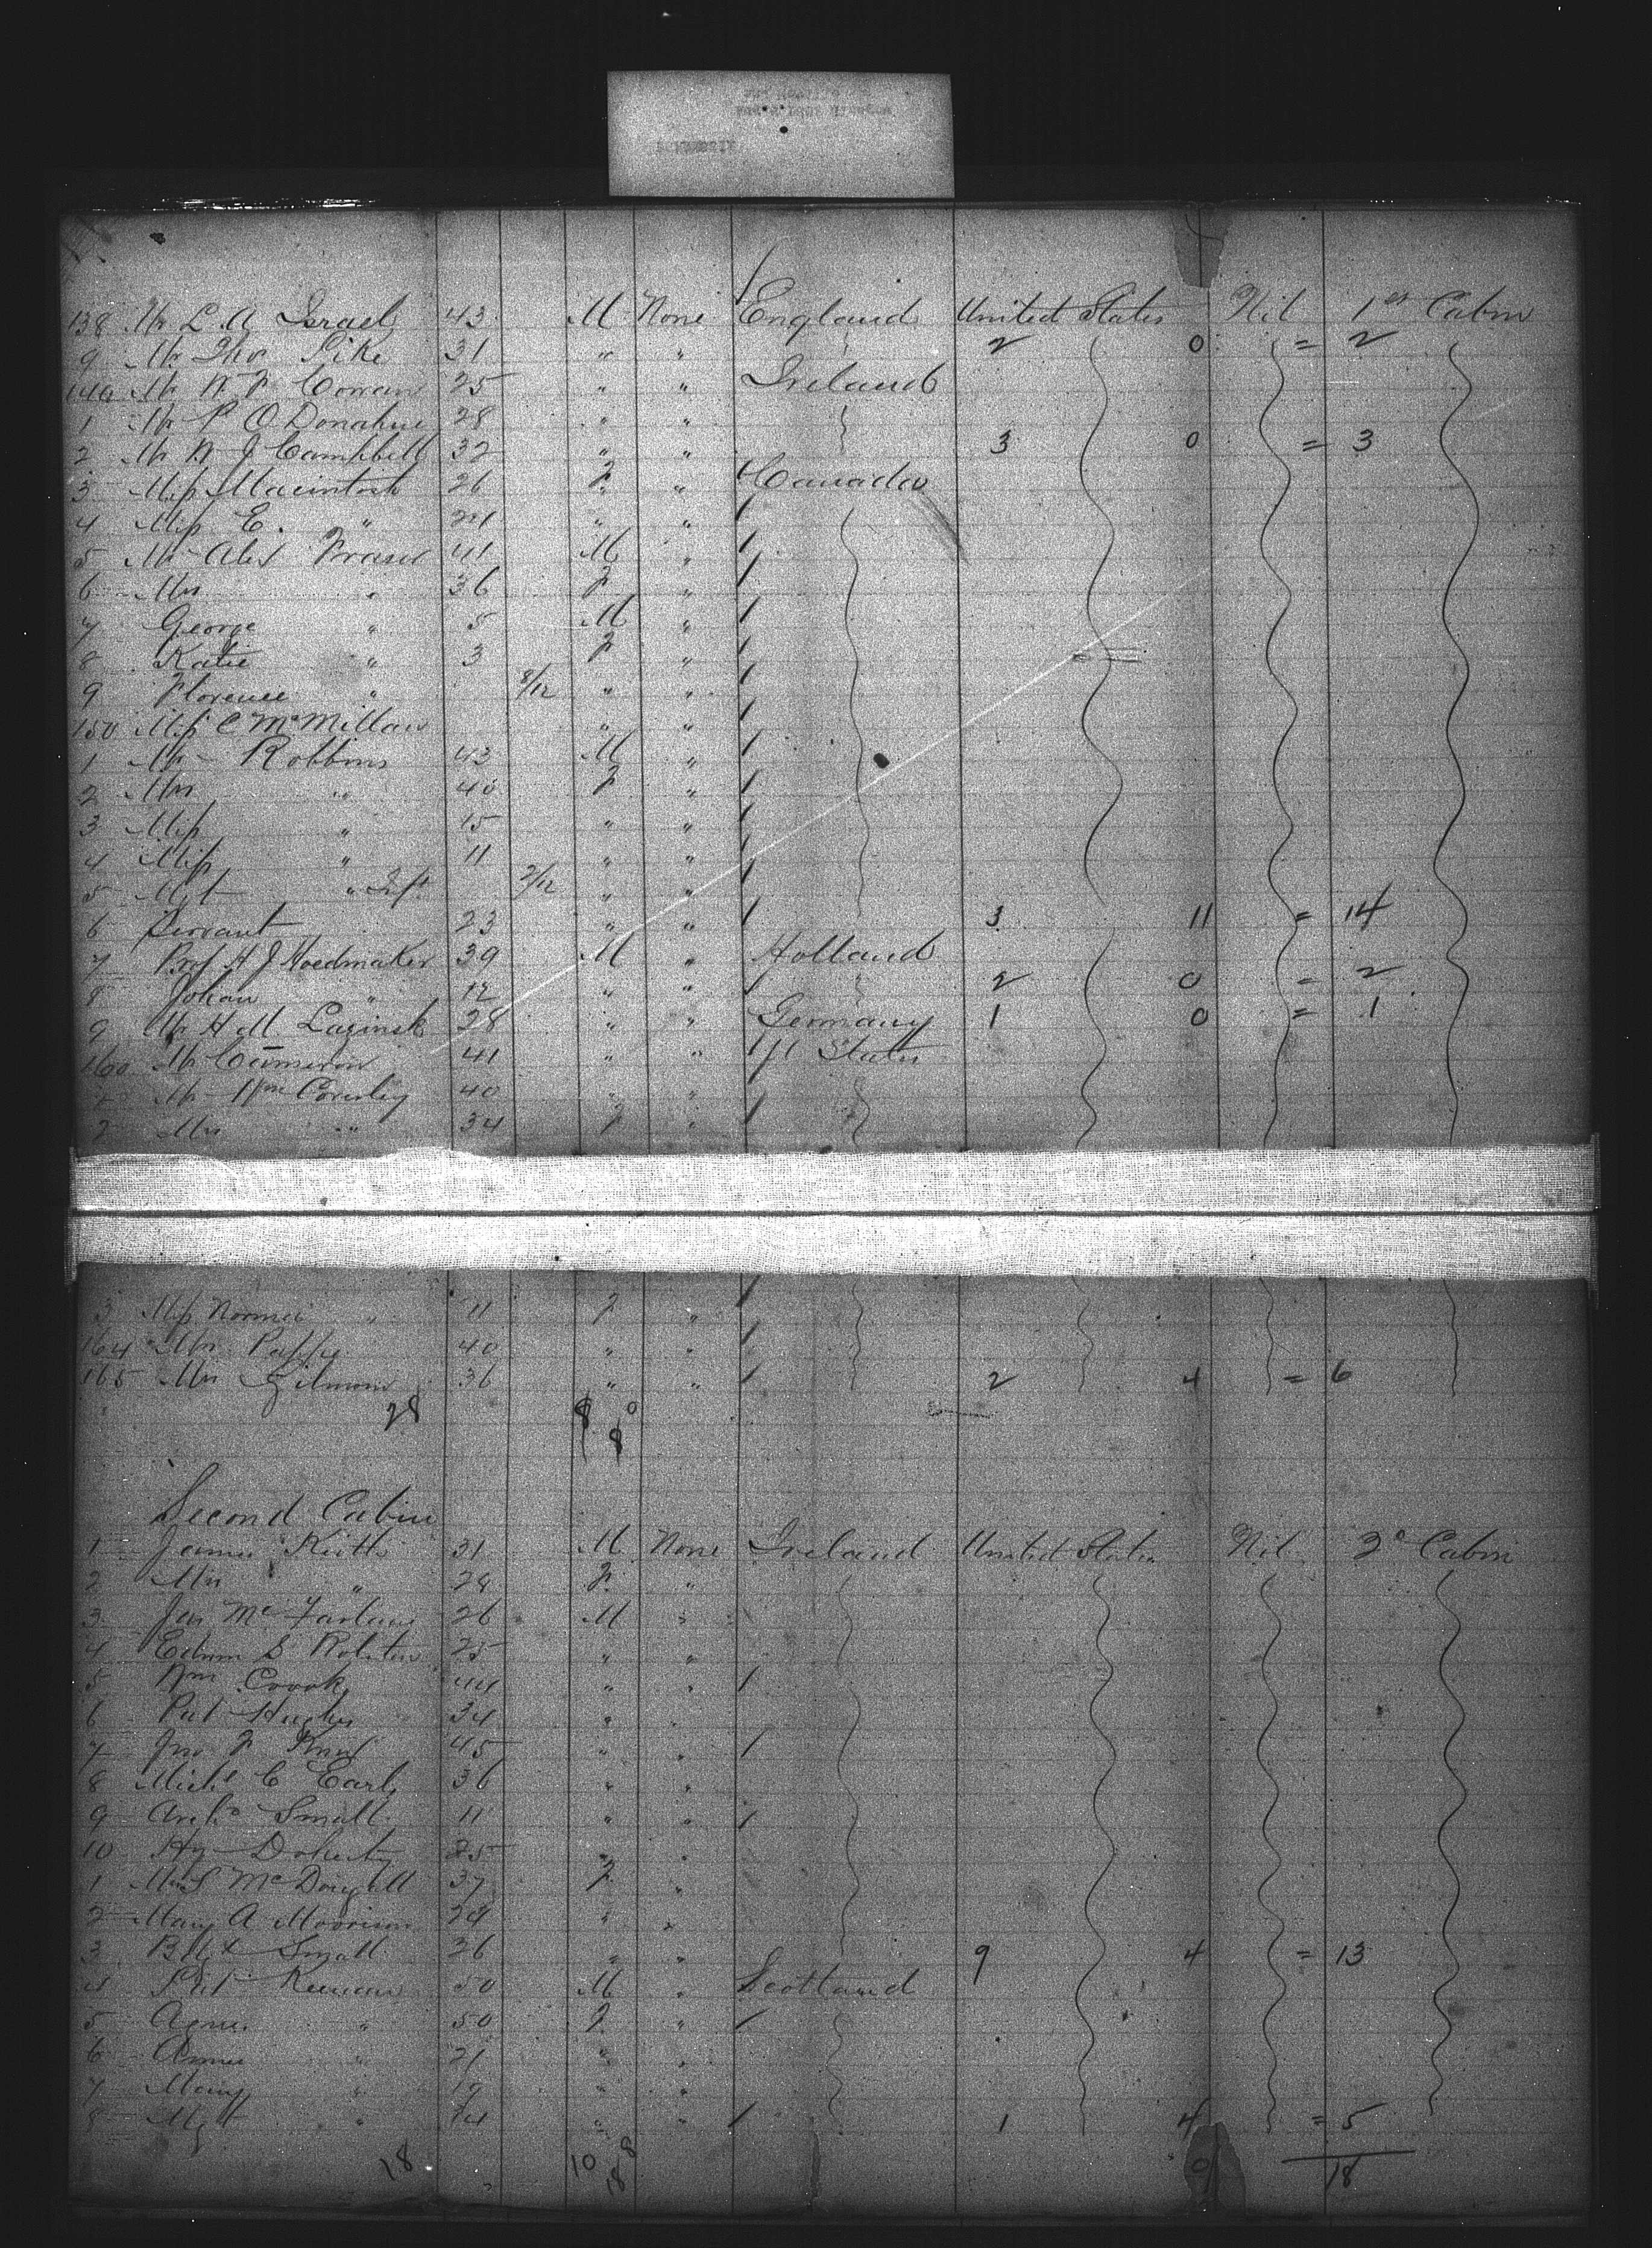 138 Mr L. A Israel 43 M None England United States Nil 1st Cabin
9 Mr Thos Pike 31 " " 2 0 = 2
140 Mr W. F. Corran 25 " " Ireland
1 Mr P O Donahue 28 " "
2 Mr W J Campbell 32 " " 3 0 = 3
3 Miss Macintosh 26 F " Canada
4 Miss E. " 21 " "
5 Mr Alex Fraser 41 M "
6 Mrs " 36 F "
7 George " 5 M "
8 Katie " 3 F "
9 Florence " 8/12 " "
150 Miss C McMillan " "
1 Mr Robbins 43 M "
2 Mrs " 40 F "
3 Miss " 15 " "
4 Miss " 11 " "
5 Mgt " Inft 2/12 " "
6 Servant 23 " " 3 11 = 14
7 Prof H J Hoedmaker 39 M " Holland
8 Johan " 12 " " 2 0 = 2
9 Mr H M Lazinsk 28 " " Germany 1 0 = 1
160 Mr Cameron 41 " " U States
Mr Wm Coverley 40 " "
2 Mrs " 34 F "
3 Miss " 11 F "
164 Mrs 40 " "
165 Mrs 36 " " 2 4 = 6
28
Second Cabin
1 James Keith 31 M None Ireland United States Nil 2d Cabin
2 Mrs " 28 F "
3 Jas McFarlane 26 M "
4 Edwin S 25 " "
5 Wm Crook 44 " "
6 Pat Hughes 34 " "
7 Jno F Knox 45 " "
8 Michl C Early 36 " "
9 Archd Small 11 " "
10 Hy Doherty 25 " "
1 McDougall 37 F "
2 Mary A Morrison 24 " "
3 Small 26 " " 9 4 = 13
4 Keenan 50 M " Scotland
5 Agnes " 50 F "
6 Annie " 21 " "
7 Mary " 19 " "
8 Mgt " 14 " " 1 4 = 5
18 10 8 18 18